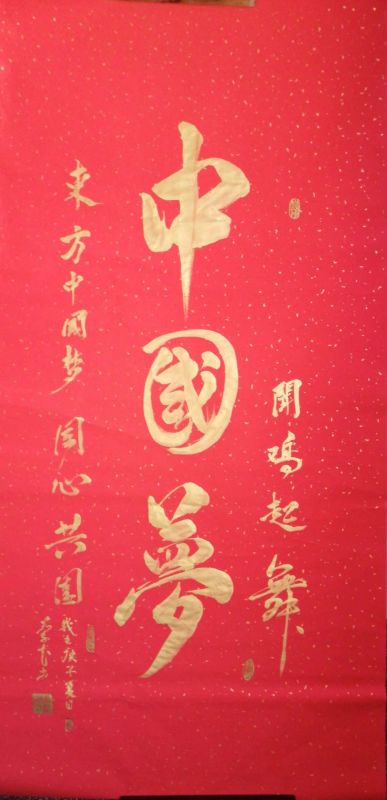 聞鸡起舞
中國夢
東方中國梦 同心共圓